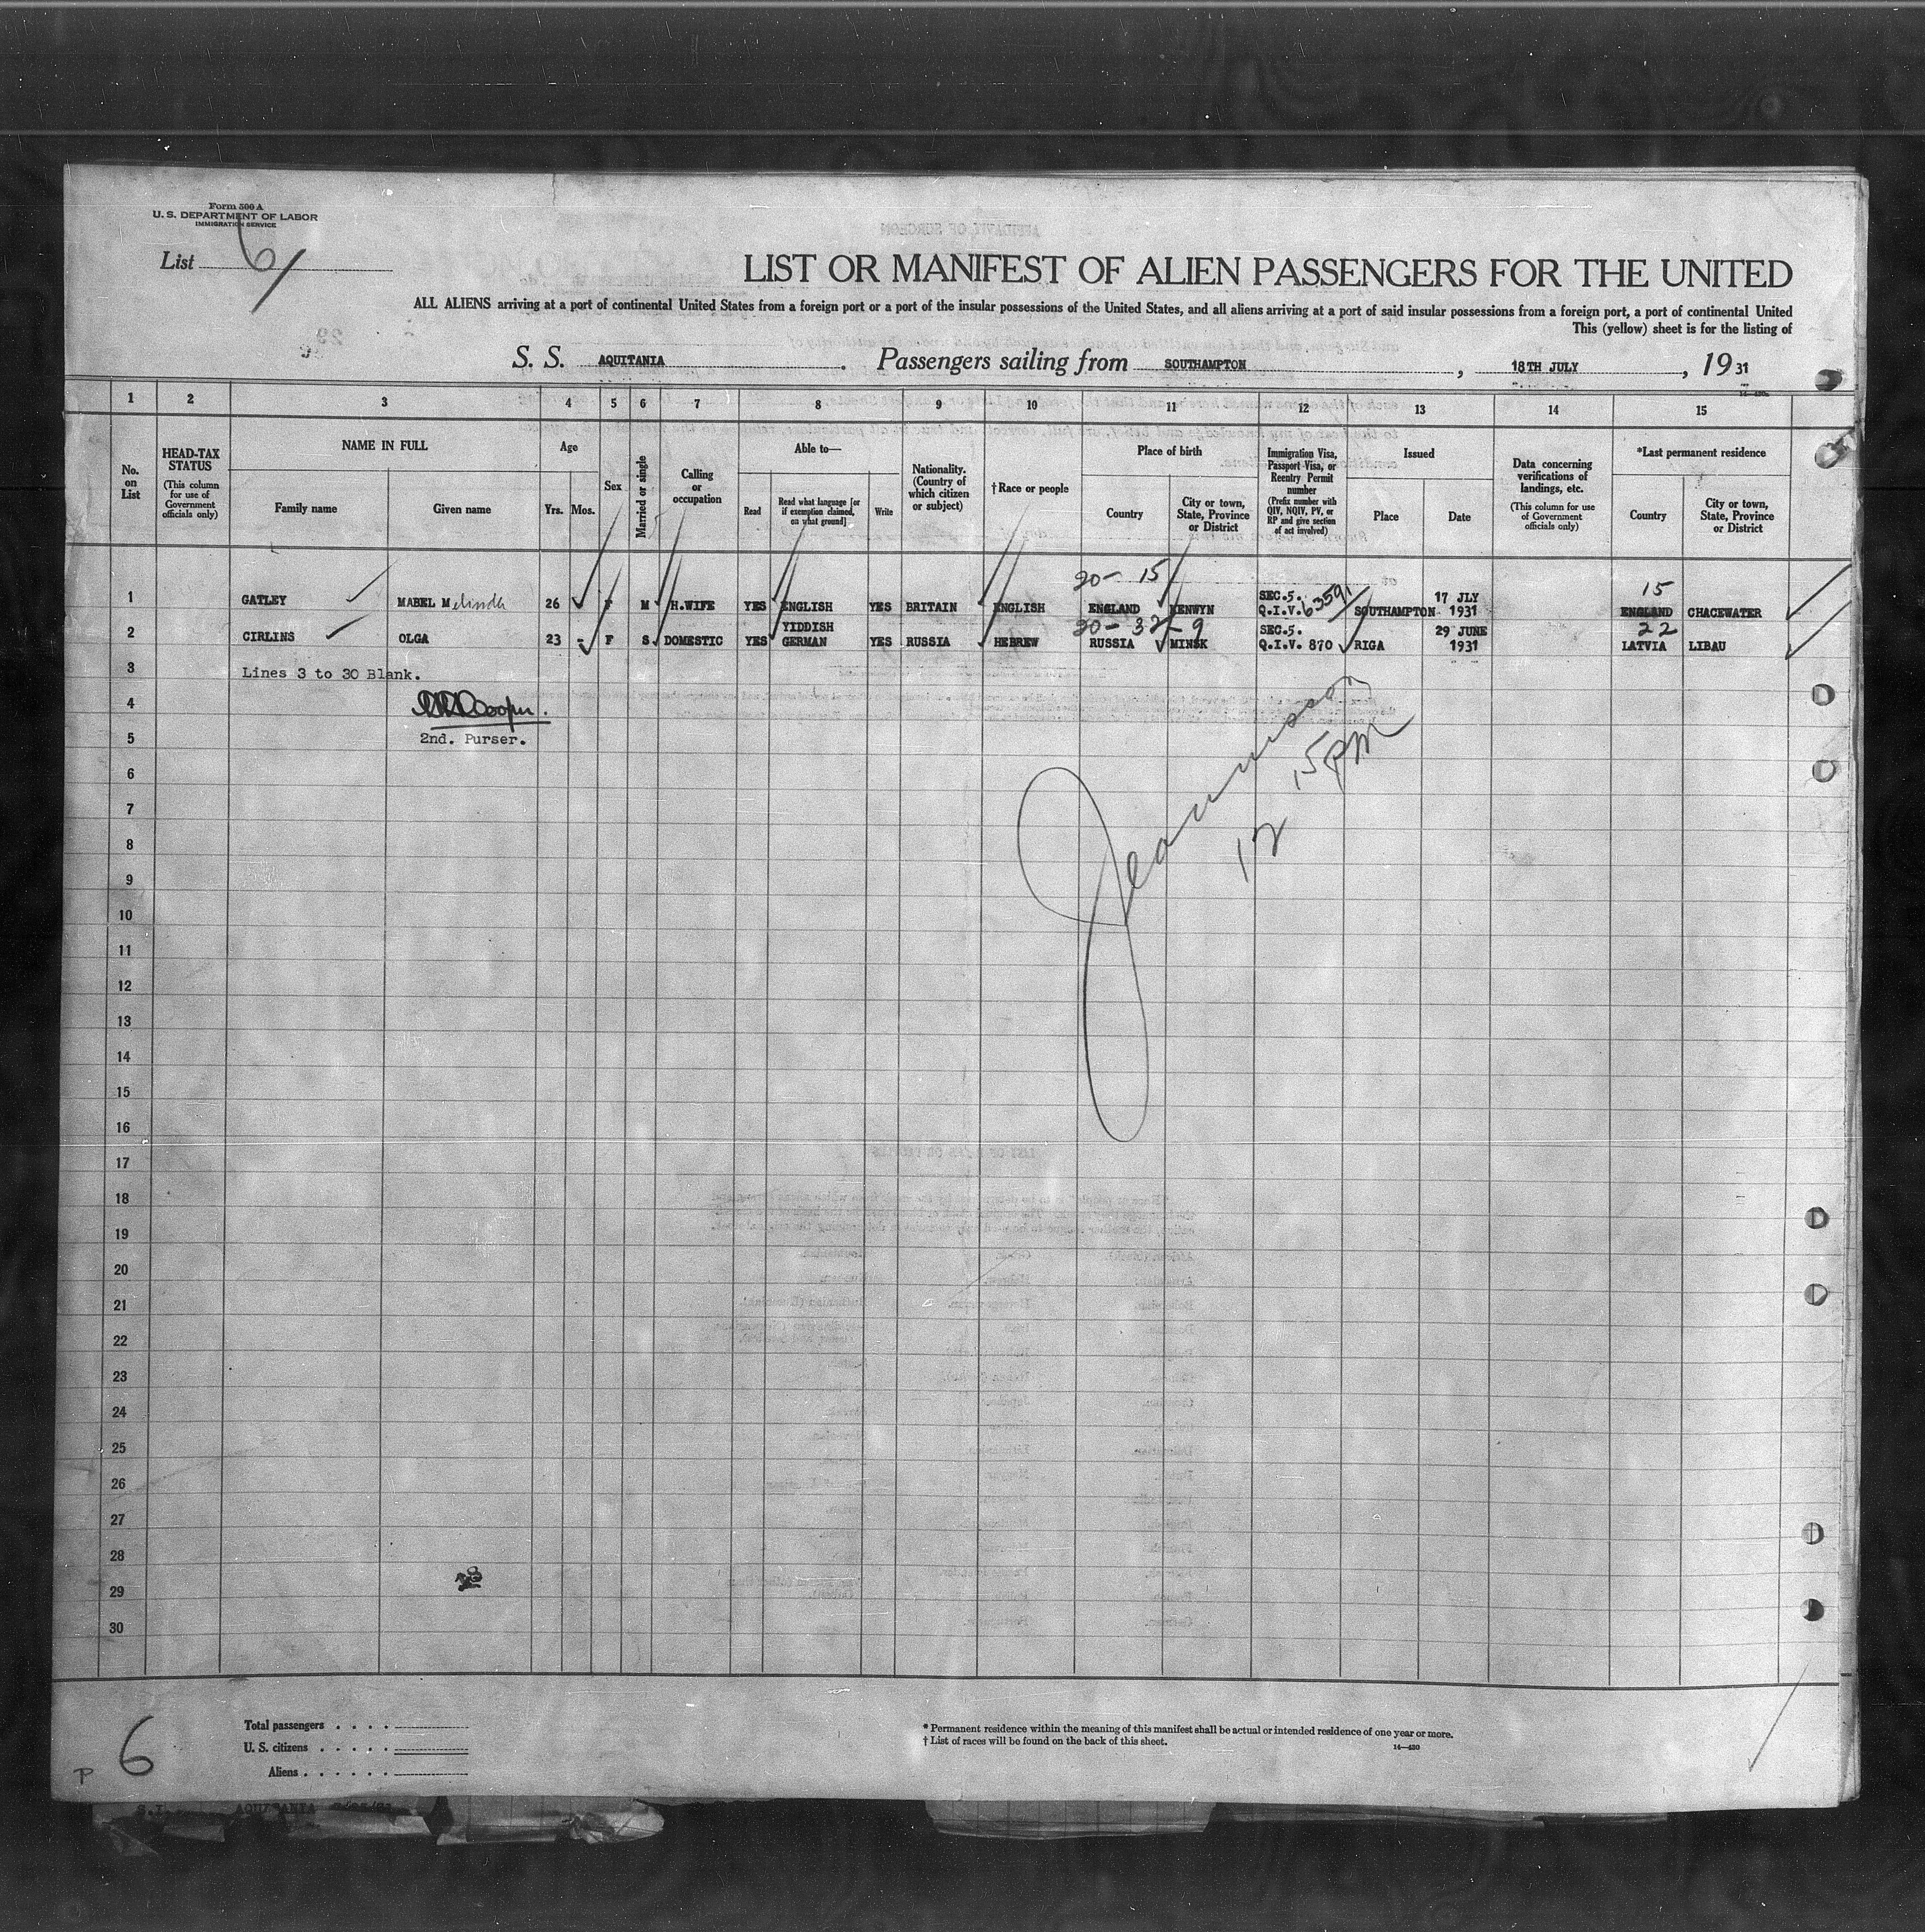 Form 500 A
U. S. DEPARTMENT OF LABOR
IMMIGRATION SERVICE
List 6
LIST OR MANIFEST OF ALIEN PASSENGERS FOR THE UNITED
ALL ALIENS arriving at a port of continental United States from a foreign port or a port of the insular possessions of the United States, and all aliens arriving at a port of said insular possessions from a foreign port, a port of continental United
This (yellow) sheet is for the listing of
S. S. AQUITANIA. Passengers sailing from SOUTHAMPTON, 18TH JULY, 1931
1 2 3 4 5 6 7 8 9 10 11 12 13 14 15
No. on List
HEAD-TAX STATUS (This column for use of Government officials only)
NAME IN FULL
Family name Given name
Age
Yrs. Mos.
Sex
Married or single
Calling or occupation
Able to—
Read Read what language [or if exemption claimed, on what ground] Write
Nationality. (Country of which citizen or subject)
†Race or people
Place of birth
Country City or town, State, Province or District
Immigration Visa, Passport Visa, or Reentry Permit number (Prefix number with QIV, NQIV, PV, or RP and give section of act involved)
Issued
Place Date
Data concerning verifications of landings, etc. (This column for use of Government officials only)
*Last permanent residence
Country City or town, State, Province or District
20- 15 15
1 GATLEY MABEL Melinda 26 F M H.WIFE YES ENGLISH YES BRITAIN ENGLISH ENGLAND KENWYN SEC.5. Q.I.V. 63591 SOUTHAMPTON 17 JLY 1931 ENGLAND CHACEWATER
20- 32-9 22
2 CIRLINS OLGA 23 - F S DOMESTIC YES YIDDISH GERMAN YES RUSSIA HEBREW RUSSIA MINSK SEC.5. Q.I.V. 870 RIGA 29 JUNE 1931 LATVIA LIBAU
3 Lines 3 to 30 Blank.
4 Cooper.
5 2nd. Purser.
12 15PM
6
7
8
9
10
11
12
13
14
15
16
17
18
19
20
21
22
23
24
25
26
27
28
29
30
P 6
Total passengers . . . .
U. S. citizens . . . . .
Aliens . . . . . .
* Permanent residence within the meaning of this manifest shall be actual or intended residence of one year or more.
† List of races will be found on the back of this sheet.
14—430
S.I. AQUITANIA